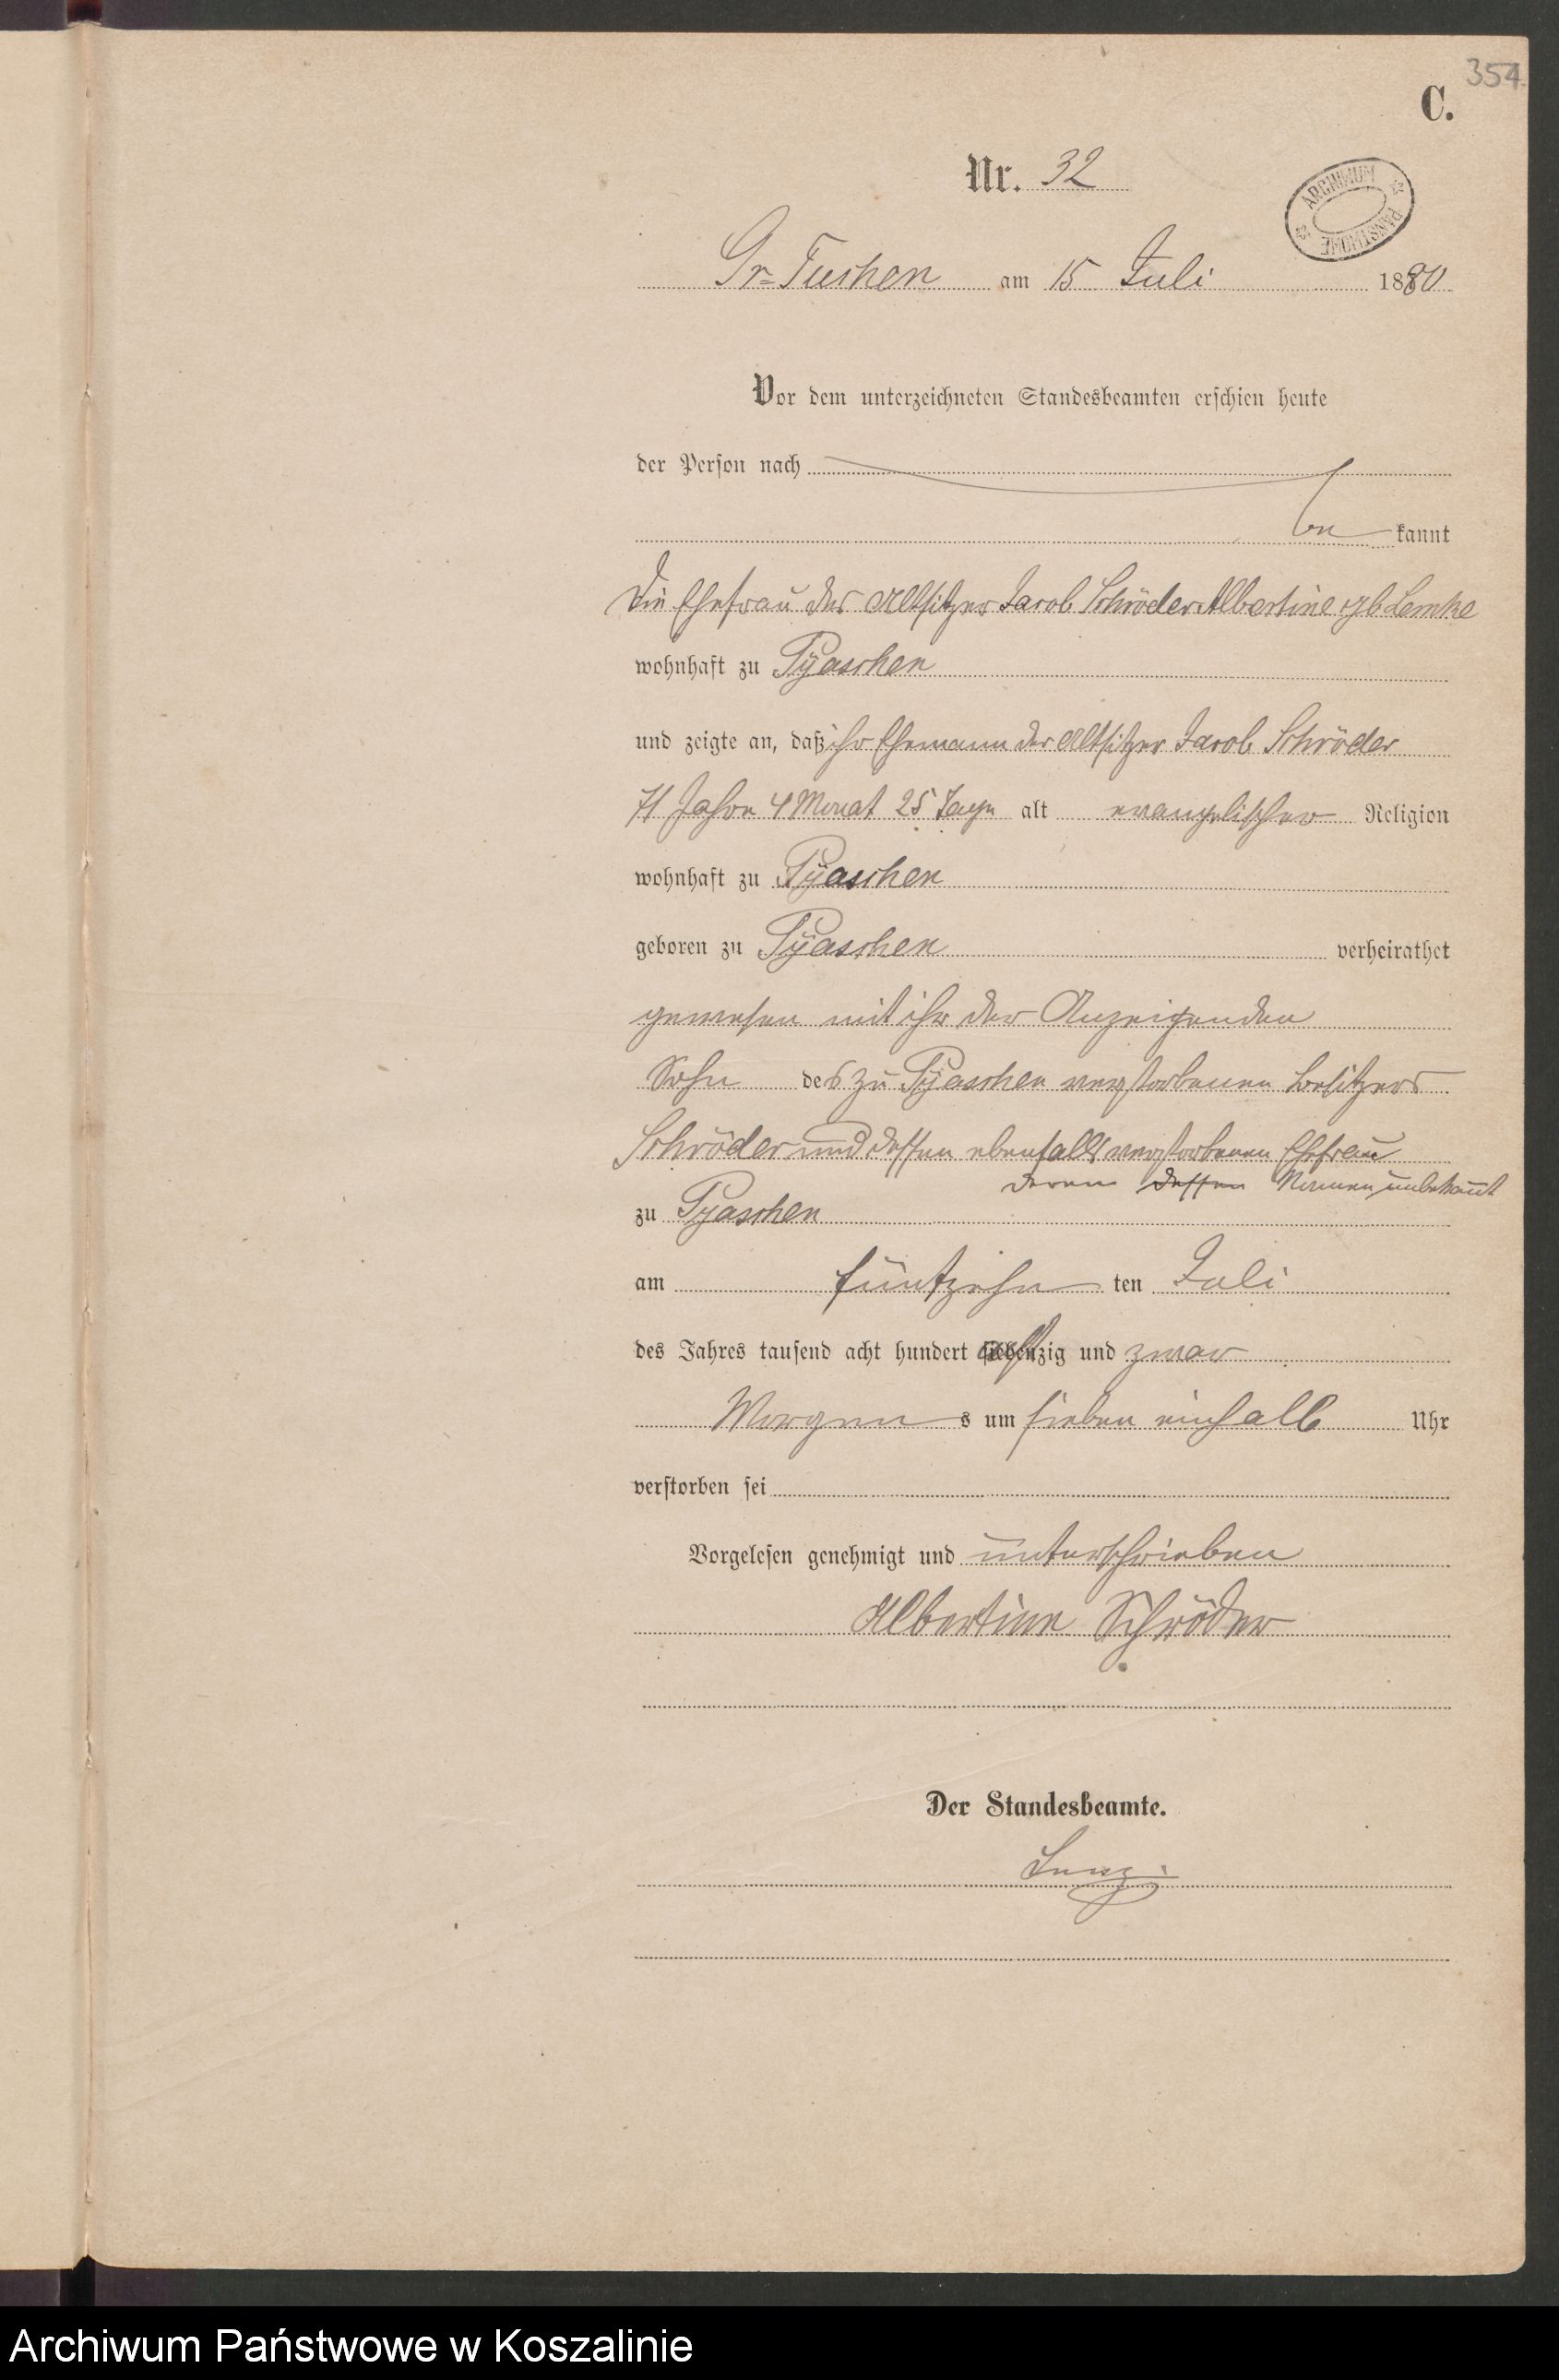 354
C.
Nr. 32
ARCHIWUM PAŃSTWOWE
Gr= Tuchen am 15 Juli 1880
Vor dem unterzeichneten Standesbeamten erschien heute
der Person nach
be kannt
die Ehefrau des Altsitzer Jacob Schröder Albertine geb Lemke
wohnhaft zu Pÿaschen
und zeigte an, daß ihr Ehemann der Altsitzer Jacob Schröder
71 Jahre 4 Monat 25 Tage alt evangelischer Religion
wohnhaft zu Pÿaschen
geboren zu Pÿaschen verheirathet
gewesen mit ihr der Anzeigenden
Sohn des zu Pÿaschen verstorbenen Besitzers
Schröder und dessen ebenfalls verstorbenen Ehefrau
deren dessen Namen unbekannt
zu Pÿaschen
am fünfzehn ten Juli
des Jahres tausend acht hundert achtzig und zwar
Morgen s um sieben einhalb Uhr
verstorben sei
Vorgelesen genehmigt und unterschrieben
Albertine Schröder
Der Standesbeamte.
Archiwum Państwowe w Koszalinie